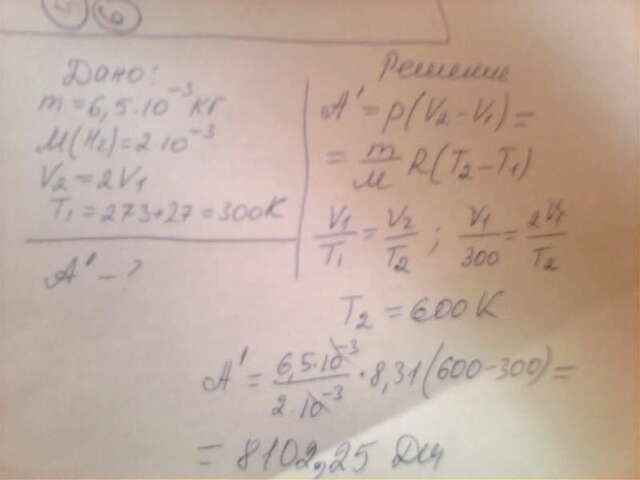 5 6
Дано:
m = 6,5·10⁻³ кг
M(H₂) = 2·10⁻³
V₂ = 2V₁
T₁ = 273+27 = 300K
A' – ?
Решение
A' = p(V₂ – V₁) =
= m/M R(T₂ – T₁)
V₁/T₁ = V₂/T₂ ; V₁/300 = 2V₁/T₂
T₂ = 600 K
A' = 6,5·10⁻³/2·10⁻³ · 8,31(600-300) =
= 8102,25 Дж